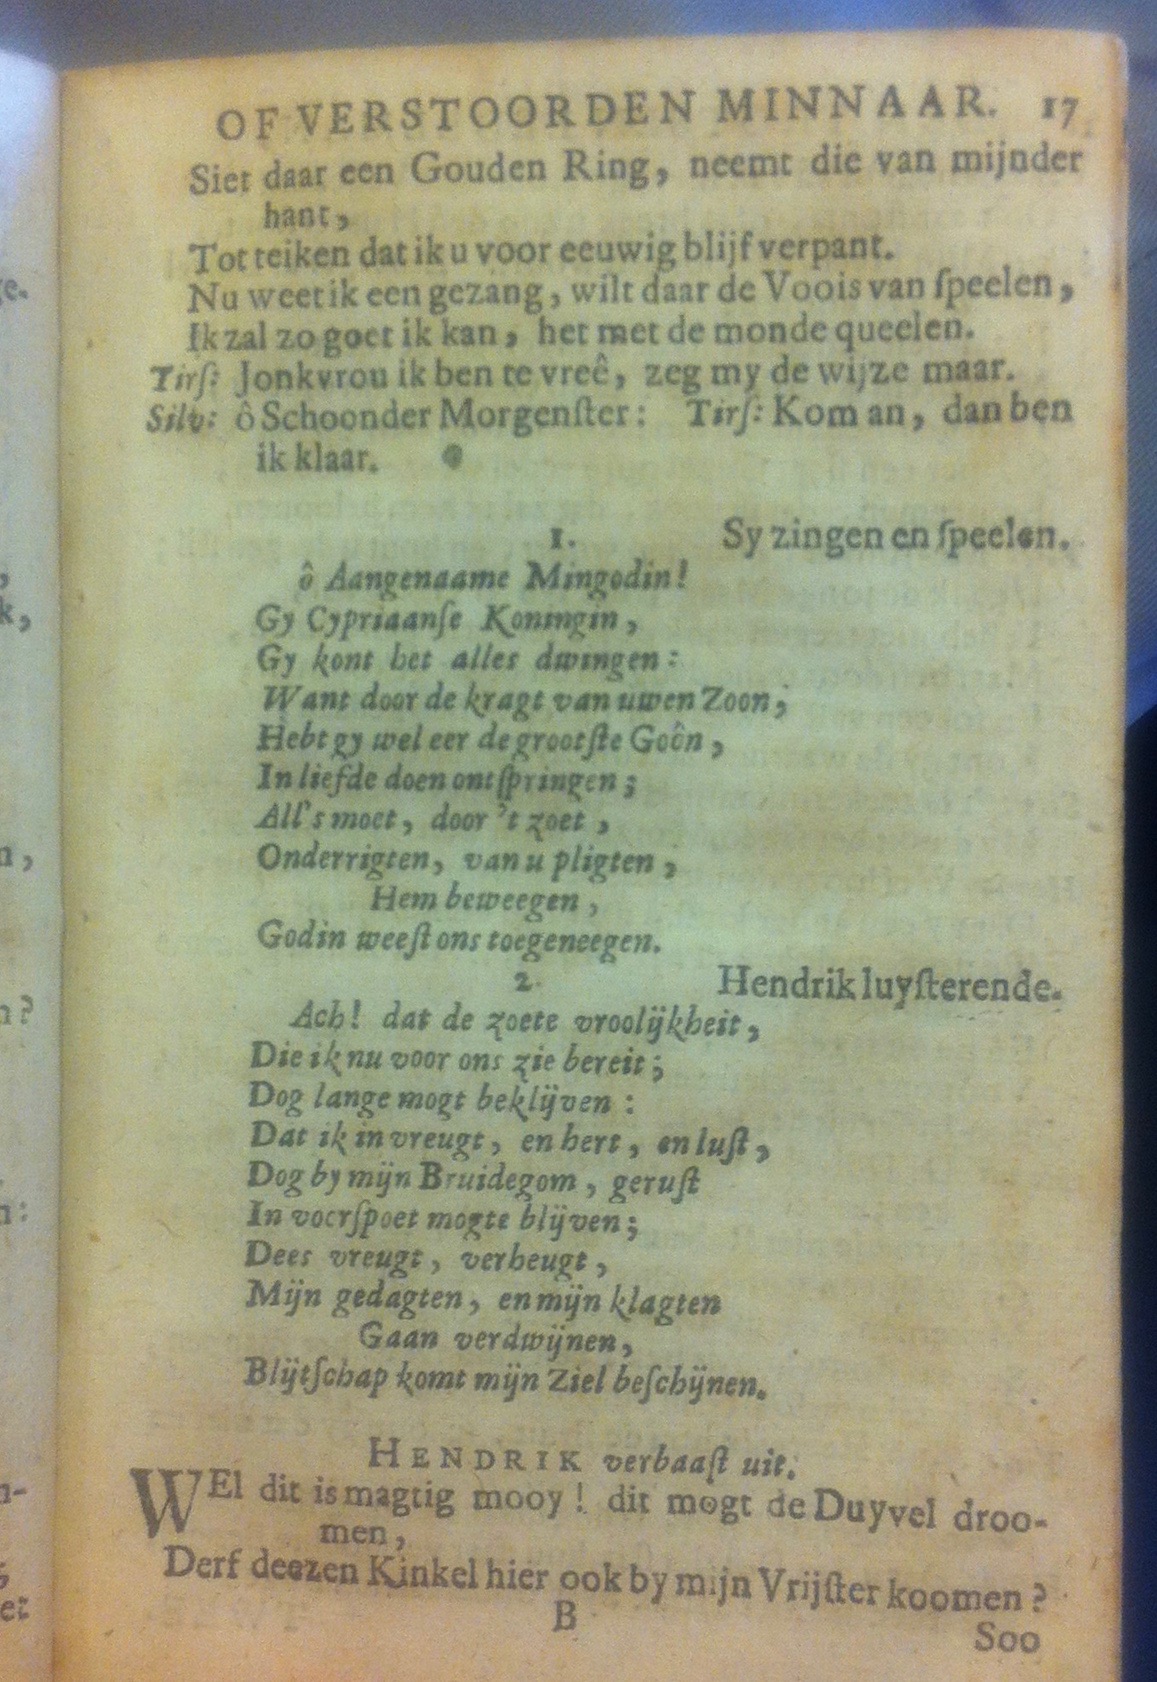 OF VERSTOORDEN MINNAAR. 17
Siet daar een Gouden Ring, neemt die van mijnder
hant,
Tot teiken dat ik u voor eeuwig blijf verpant.
Nu weet ik een gezang, wilt daar de Voois van ſpeelen,
Ik zal zo goet ik kan, het met de monde queelen.
Tirſ: Jonkvrou ik ben te vreê, zeg my de wijze maar.
Silv: ô Schoonder Morgenſter: Tirſ: Kom an, dan ben
ik klaar.
1. Sy zingen en ſpeelen.
ô Aangenaame Mingodin!
Gy Cypriaanſe Koningin,
Gy kont het alles dwingen:
Want door de kragt van uwen Zoon;
Hebt gy wel eer de grootſte Goôn,
In liefde doen ontſpringen;
All's moet, door 't zoet,
Onderrigten, van u pligten,
Hem beweegen,
Godin weeſt ons toegeneegen.
2. Hendrik luyſterende.
Ach! dat de zoete vroolijkheit,
Die ik nu voor ons zie bereit;
Dog lange mogt beklijven:
Dat ik in vreugt, en hert, en luſt,
Dog by mijn Bruidegom, geruſt
In voorſpoet mogte blijven;
Dees vreugt, verheugt,
Mijn gedagten, en mijn klagten
Gaan verdwijnen,
Blijtſchap komt mijn Ziel beſchijnen.
HENDRIK verbaaſt uit.
WEl dit is magtig mooy! dit mogt de Duyvel droo-
men,
Derf deezen Kinkel hier ook by mijn Vrijſter koomen?
B
Soo